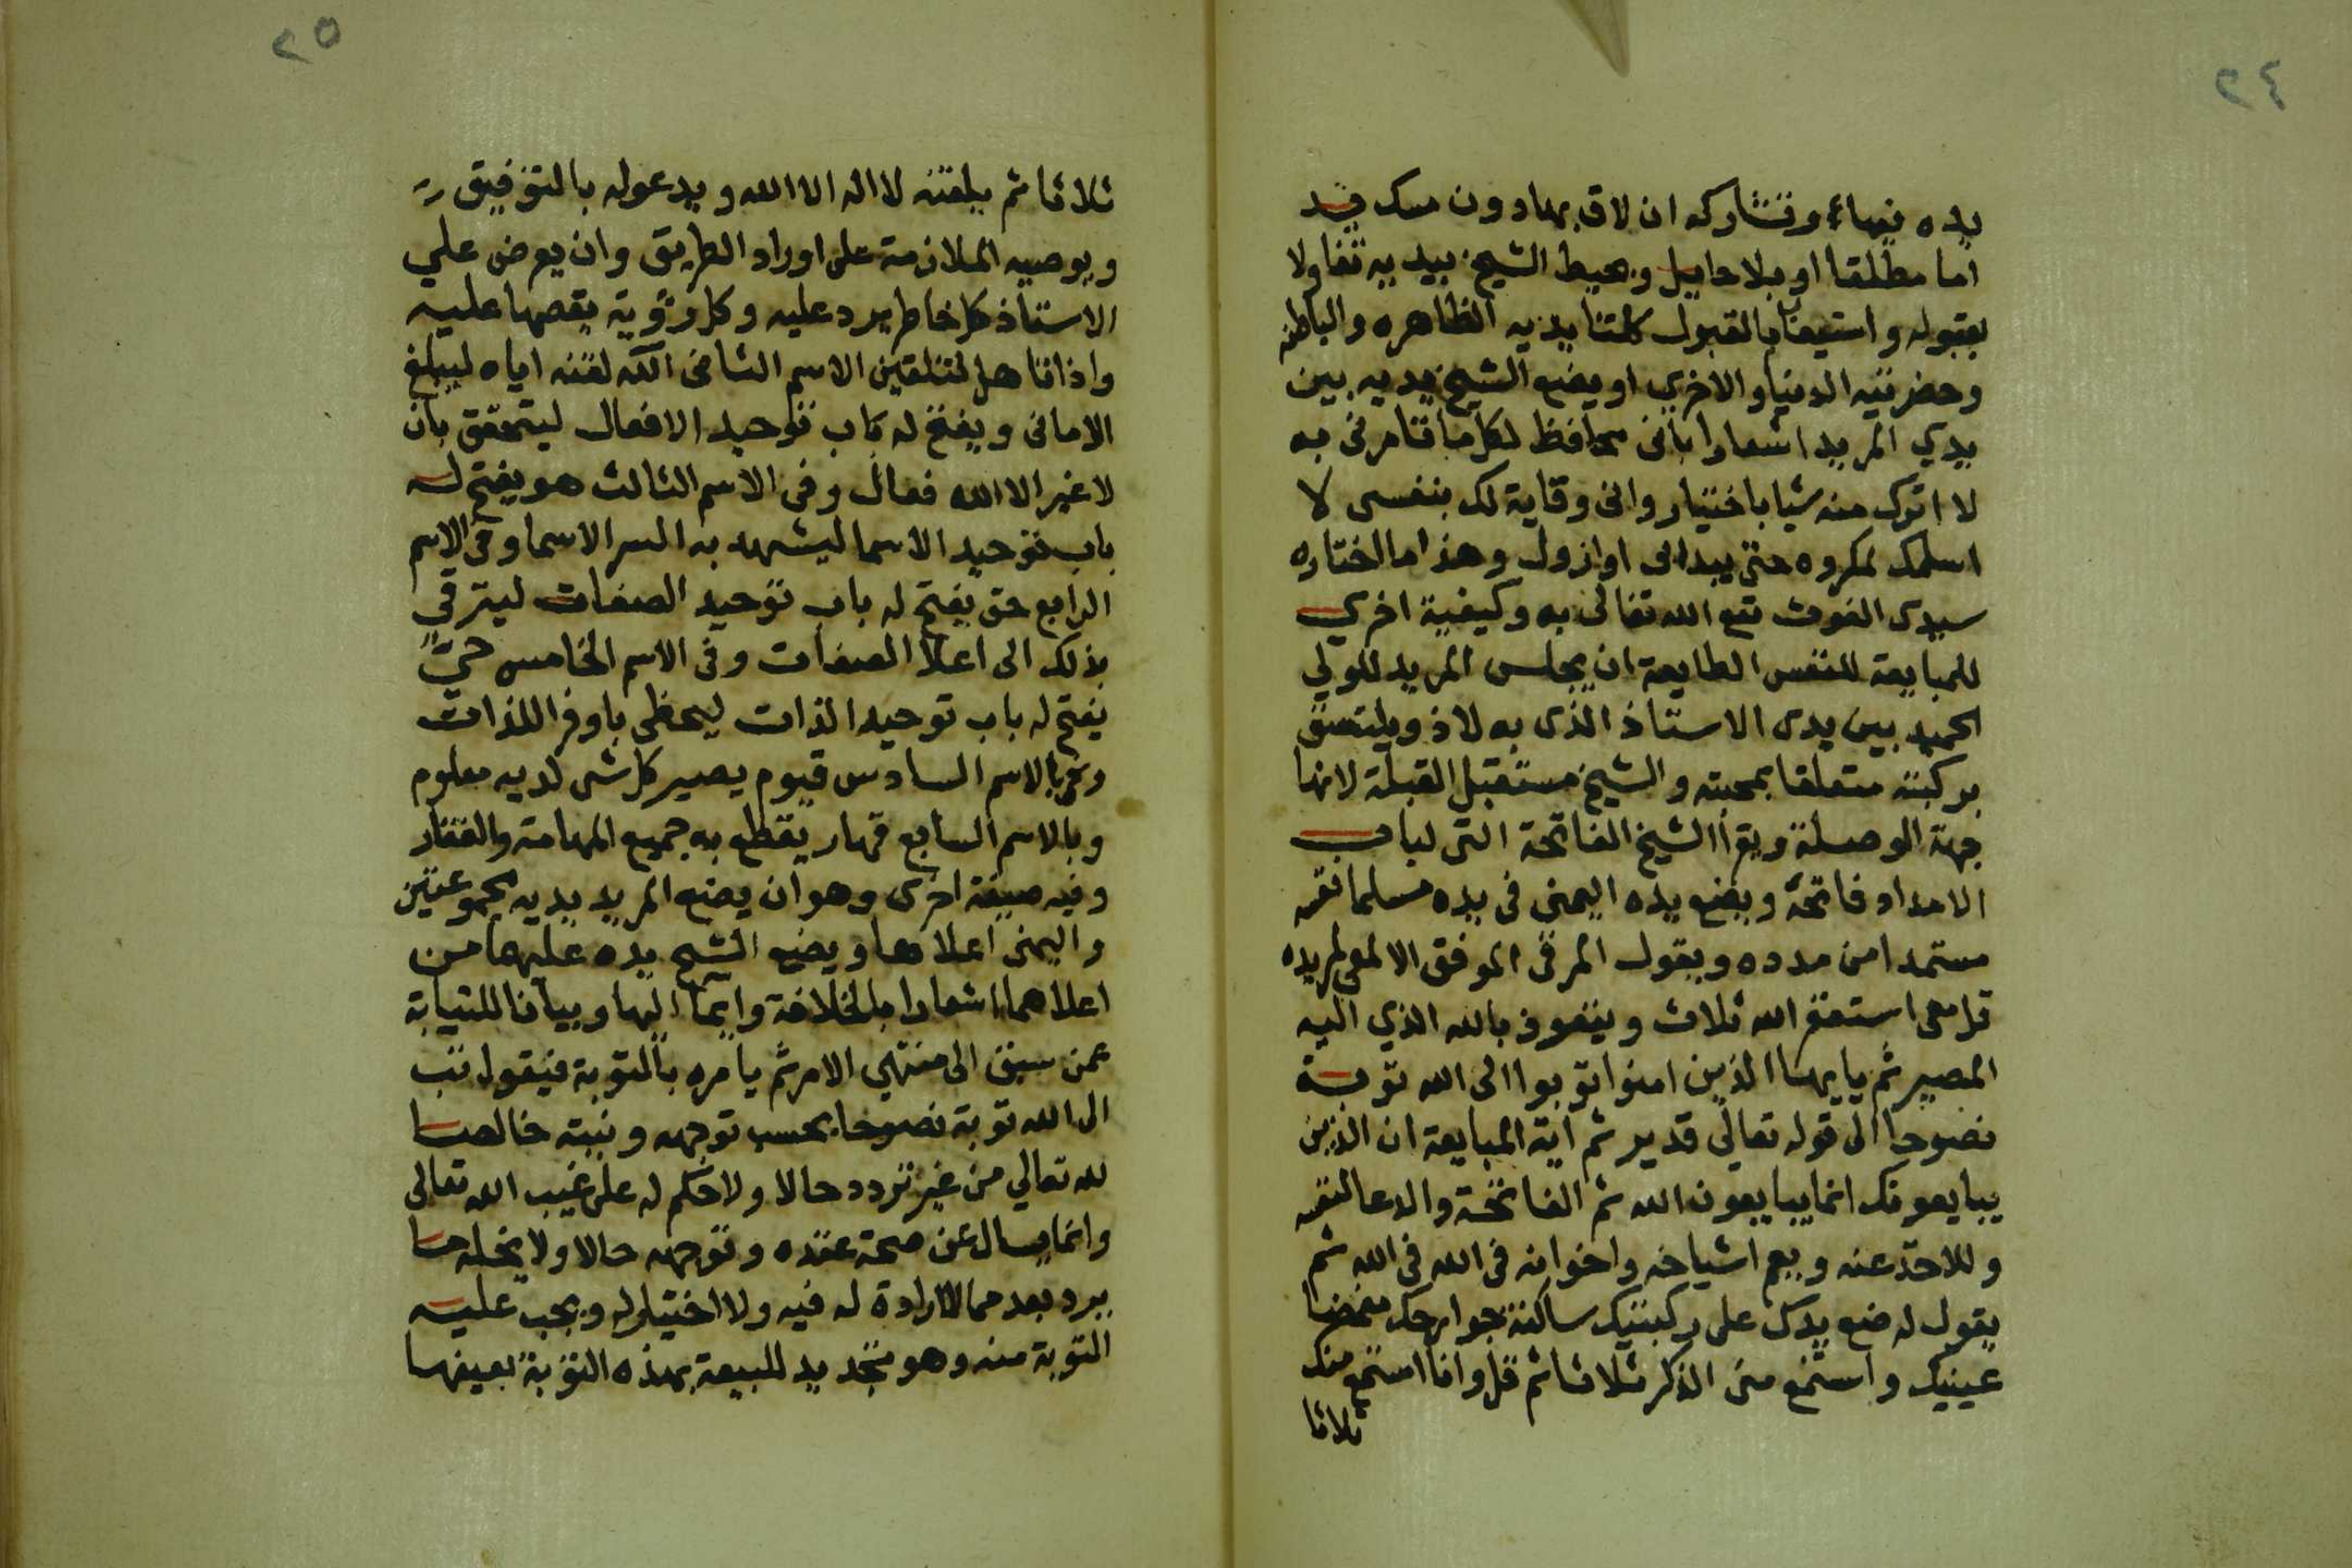 ٢٤
يده فيها وتشاركه ان لاق بها دون مسك قيد
اما مطلقا او بلا حايل ويحيط الشيخ بيديه تفاولا
بقبوله واستيعابا بالقبول كلتا يديه الظاهره والباطنه
وحضرتيه الدنيا والاخري او يضع الشيخ يديه بين
يدي المريد اشعارا باني محافظ لكل ما تامرني به
لا اترك منه شيا باختيار واني وقاية لك بنفسي لا
اسلمك لمكروه حتى يبدا لي او ازول وهذا ما اختاره
سيدى الغوث نفع الله تعالى به وكيفية اخري
للمبايعة للنفس الطايعة ان يجلس المريد للولي
الحميد بين يدى الاستاذ الذى به لاذ ويلتصق
بركبته متعلقا بمحبته والشيخ مستقبل القبلة لانها
جهة الوصلة ويقرأ الشيخ الفاتحة التى لباب
الامداد فاتحة ويضع يده اليمنى فى يده مسلما نفسه
مستمدا من مدده ويقول المرقى الموفق الالمعى لمريده
قل معى استغفر الله ثلاث ويتعوذ بالله الذي اليه
المصير ثم يا يها الذين امنوا توبوا الى الله توبة
نصوحا الى قوله تعالى قدير ثم اية المبايعة ان الذين
يبايعونك انما يبايعون الله ثم الفاتحة والدعا لنفسه
وللاخذ عنه وبعم اشياخه واخوانه فى الله فى الله ثم
يقول له ضع يدك على ركبتيك ساكنة جوارحك مغمضا
عينيك واستمع منى الذكر ثلاثا ثم قل وانا استمع منك
ثلاثا
٢٥
ثلاثا ثم يلقنه لا اله الا الله ويدعوله بالتوفيق
ويوصيه الملازمة على اوراد الطريق وان يعرض علي
الاستاذ كل خاطر يرد عليه وكل رؤية يقصها عليه
واذا تاهل لتلقين الاسم الثانى الله لقنه اياه ليبلغ
الامانى ويفتح له باب توحيد الافعال ليتحقق بان
لا غير الا الله فعال وفى الاسم الثالث هو يفتح له
باب توحيد الاسما ليشهد به السر الاسما وفى الاسم
الرابع حق يفتح له باب توحيد الصفات ليترقي
بذلك الى اعلا الصفات وفى الاسم الخامس حي
يفتح له باب توحيد الذات ليحظى باوفر اللذات
وبالاسم السادس قيوم يصير كل شى لديه معلوم
وبالاسم السابع قهار يقطع به جميع المهامة والقفار
وفيه صيغة اخرى وهو ان يضع المريد يديه مجموعتين
واليمنى اعلاها ويضع الشيخ يده عليها من
اعلاهما اشعارا بالخلافة وايمآ اليها وبيانا للنيابة
عمن سبق الى منتهي الامر ثم يامره بالتوبة فيقول تب
الى الله توبة نصوحا بحسب توجهه ونيته خالصا
لله تعالي من غير تردد حالا ولا حكم له على غيب الله تعالى
وانما يسال عن صحة عقده وتوجهه حالا ولا يخله ما
يرد بعد مما لا ارادة له فيه ولا اختيار له ويجب عليه
التوبة منه وهو تجديد للبيعة بهذه التوبة بعينها